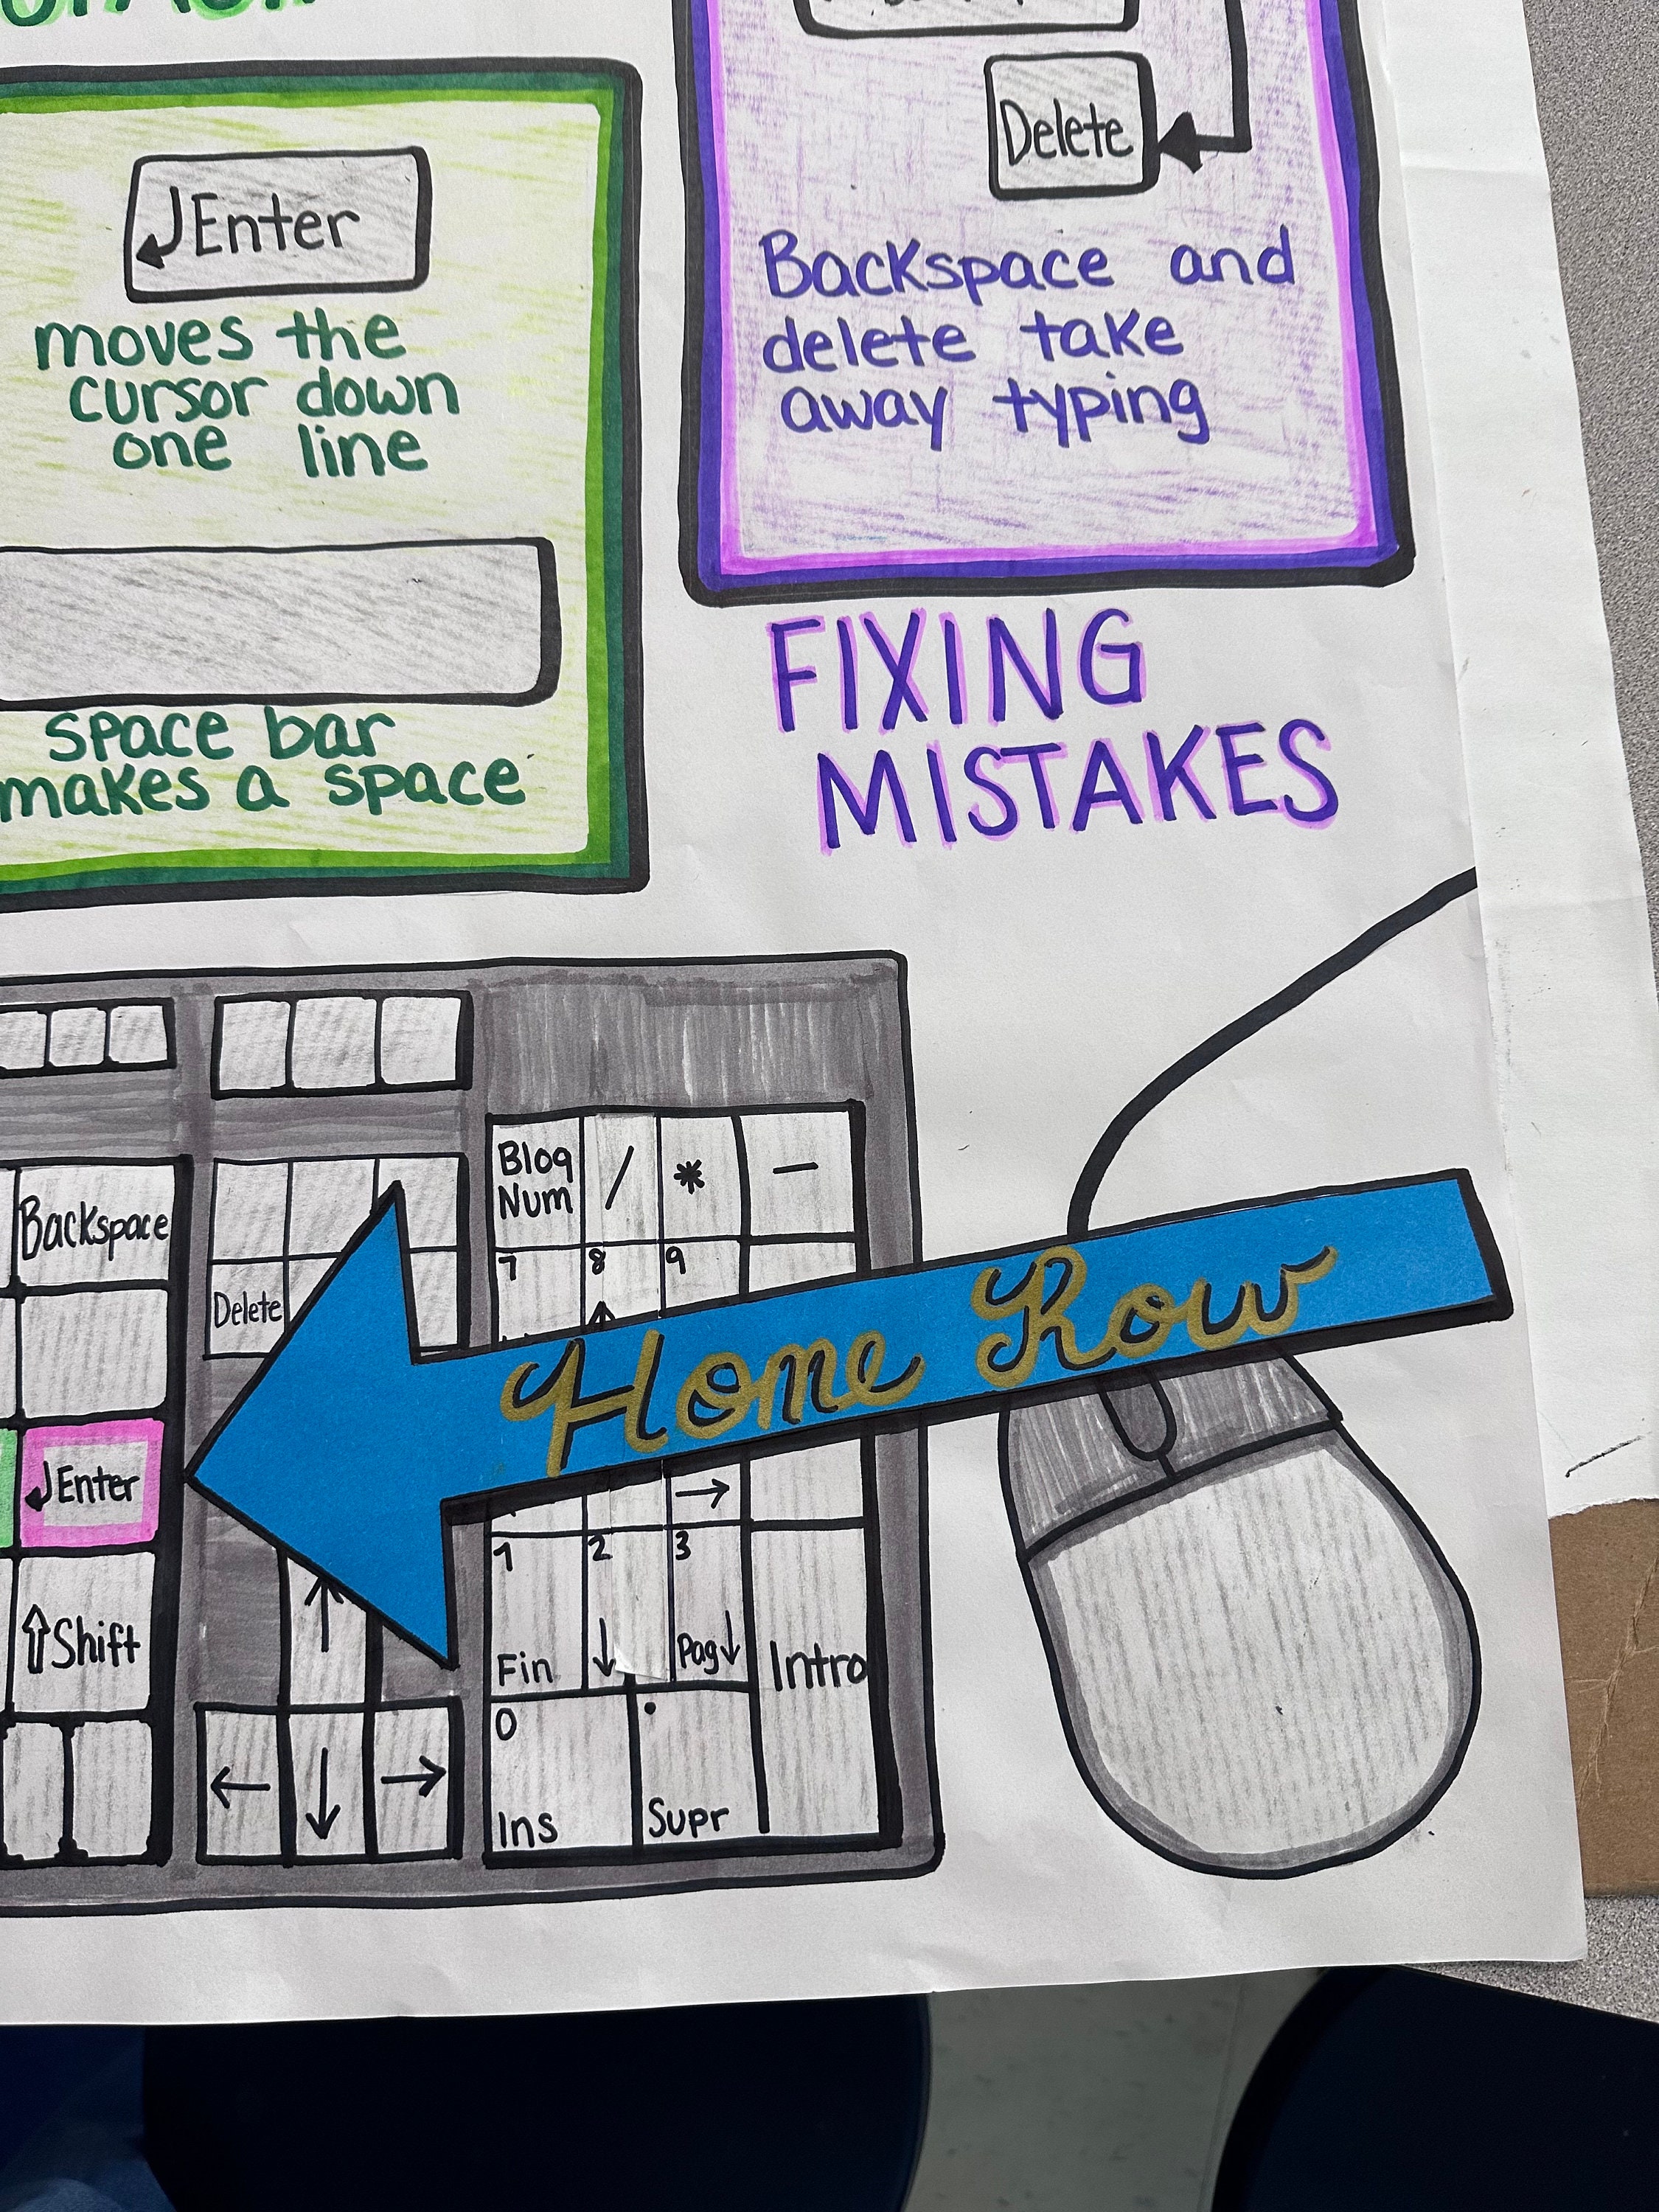 Delete
Backspace and
delete take
away typing
FIXING
MISTAKES
Enter
moves the
cursor down
one line
space bar
makes a space
Backspace
Delete
Enter
Shift
Bloq
Num
/
*
—
7
8
9
Home Row
1
2
3
Fin
Pag
Intro
0
.
Ins
Supr